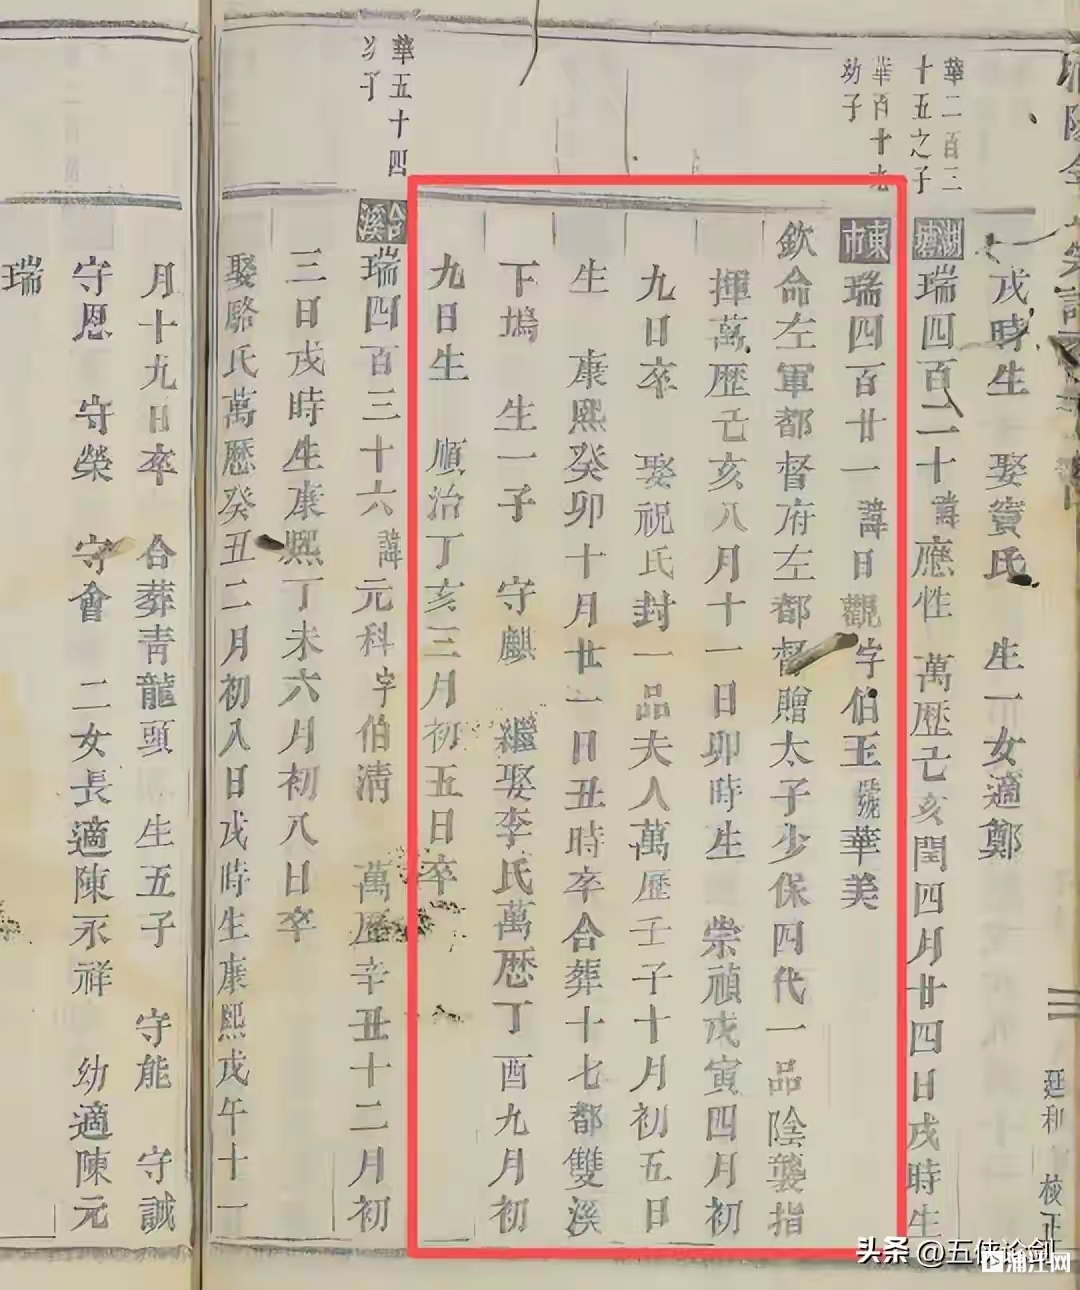 華二百三
十五之子
華百十九
幼子
華五十四
幼子
戌時生 娶竇氏 生一女適鄭
湖塘 瑞四百二十 諱應性 萬歷亡亥閏四月廿四日戌時生
東市 瑞四百廿一 諱日觀 字伯玉 號華美
欽命左軍都督府左都督贈太子少保四代一品陰襲指
揮萬歷亡亥八月十一日卯時生 崇禎戊寅四月初
九日卒 娶祝氏封一品夫人萬歷壬子十月初五日
生 康熙癸卯十月廿一日丑時卒合葬十七都雙溪
下塢 生一子 守麒 繼娶李氏萬歷丁酉九月初
九日生 順治丁亥三月初五日卒
合溪 瑞四百三十六 諱元科 字伯清 萬歷辛丑十二月初
三日戌時生康熙丁未六月初八日卒
娶駱氏萬歷癸丑二月初八日戌時生康熙戊午十一
月十九日卒 合葬青龍頭 生五子 守能 守誠
守思 守榮 守會 二女長適陳永祥 幼適陳元
瑞
延和 校正
头条 @五侠论剑
浦江网